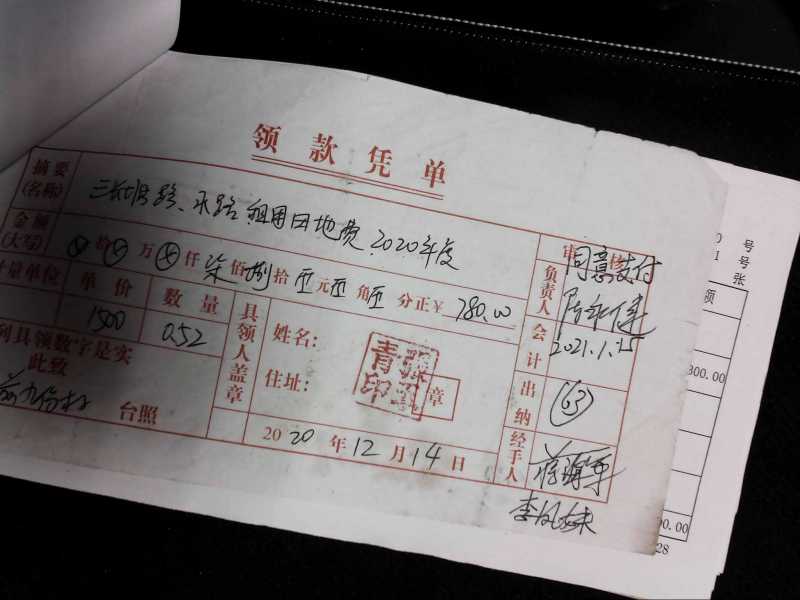 领款凭单
摘要(名称) 路、水路租用田地费.2020年度
金额(大写) 拾 万 仟 柒佰捌拾 元 角 分正¥ 780.00
计量单位 单价 数量
1500 0.52
列具领数字是实
此致
台照
具领人盖章
姓名:
住址:
章
2020年12月14日
审核
负责人 同意支付
2021.1.15
会计
出纳 63
经手人
号
号
张
额
800.00
00.00
28